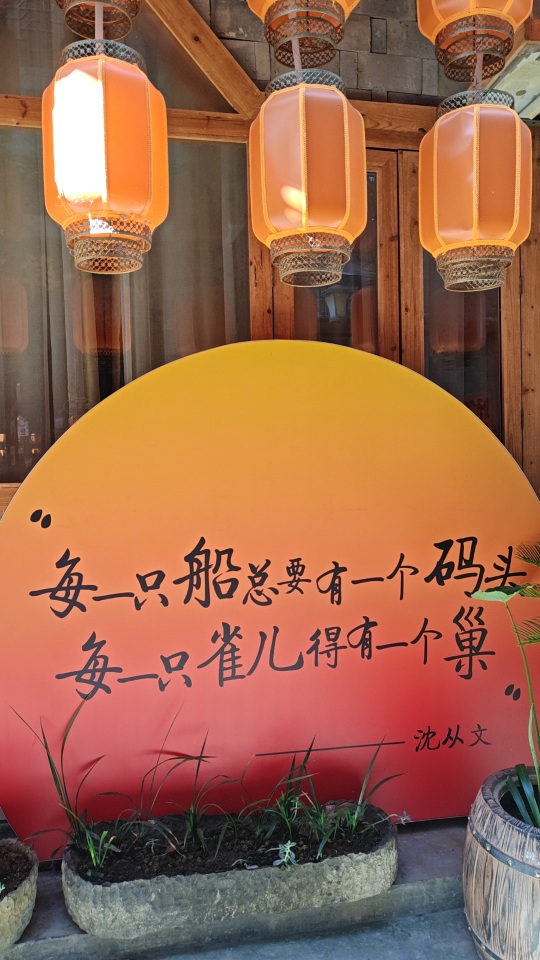 “每一只船总要有一个码头
每一只雀儿得有一个巢”
——沈从文